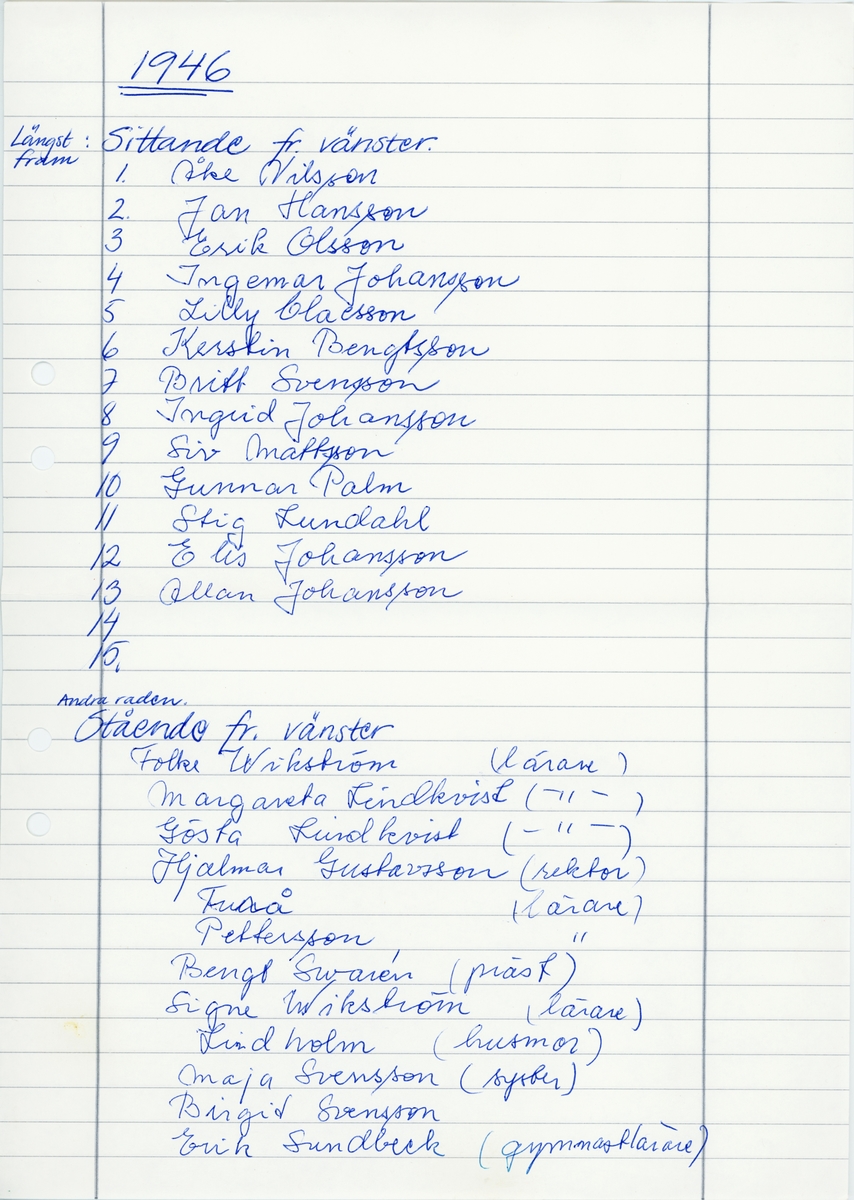 1946
Längst : Sittande fr. vänster.
fram
1. Åke Nilsson
2. Jan Hansson
3 Erik Olsson
4 Ingemar Johansson
5 Lilly Claesson
6 Kerstin Bengtsson
7 Britt Svensson
8 Ingrid Johansson
9 Siv Mattsson
10 Gunnar Palm
11 Stig Lundahl
12 Elis Johansson
13 Allan Johansson
14
15.
Andra raden.
Stående fr. vänster
Folke Wikström (lärare)
Margareta Lindkvist (-"-)
Gösta Lindkvist (-"-)
Hjalmar Gustavsson (rektor)
(lärare)
Pettersson "
Bengt Swarén (präst)
Signe Wikström (lärare)
Lindholm (husmor)
Maja Svensson (syster)
Birgit Svensson
Erik Sundbeck (gymnastlärare)